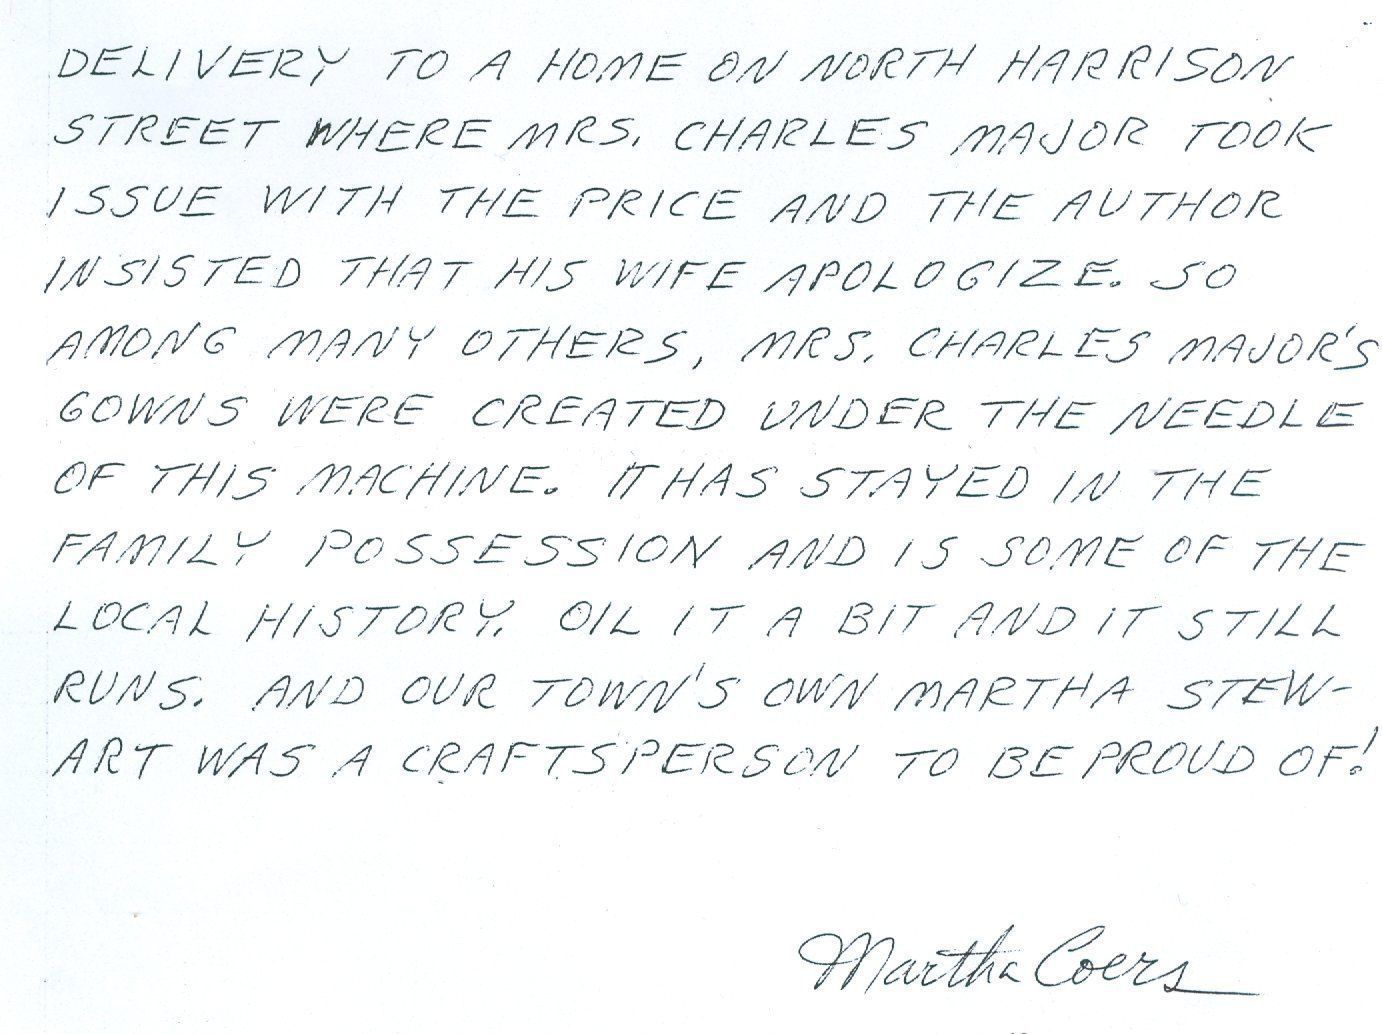 DELIVERY TO A HOME ON NORTH HARRISON
STREET WHERE MRS. CHARLES MAJOR TOOK
ISSUE WITH THE PRICE AND THE AUTHOR
INSISTED THAT HIS WIFE APOLOGIZE. SO
AMONG MANY OTHERS, MRS. CHARLES MAJOR'S
GOWNS WERE CREATED UNDER THE NEEDLE
OF THIS MACHINE. IT HAS STAYED IN THE
FAMILY POSSESSION AND IS SOME OF THE
LOCAL HISTORY. OIL IT A BIT AND IT STILL
RUNS. AND OUR TOWN'S OWN MARTHA STEW-
ART WAS A CRAFTSPERSON TO BE PROUD OF!
Martha Coers